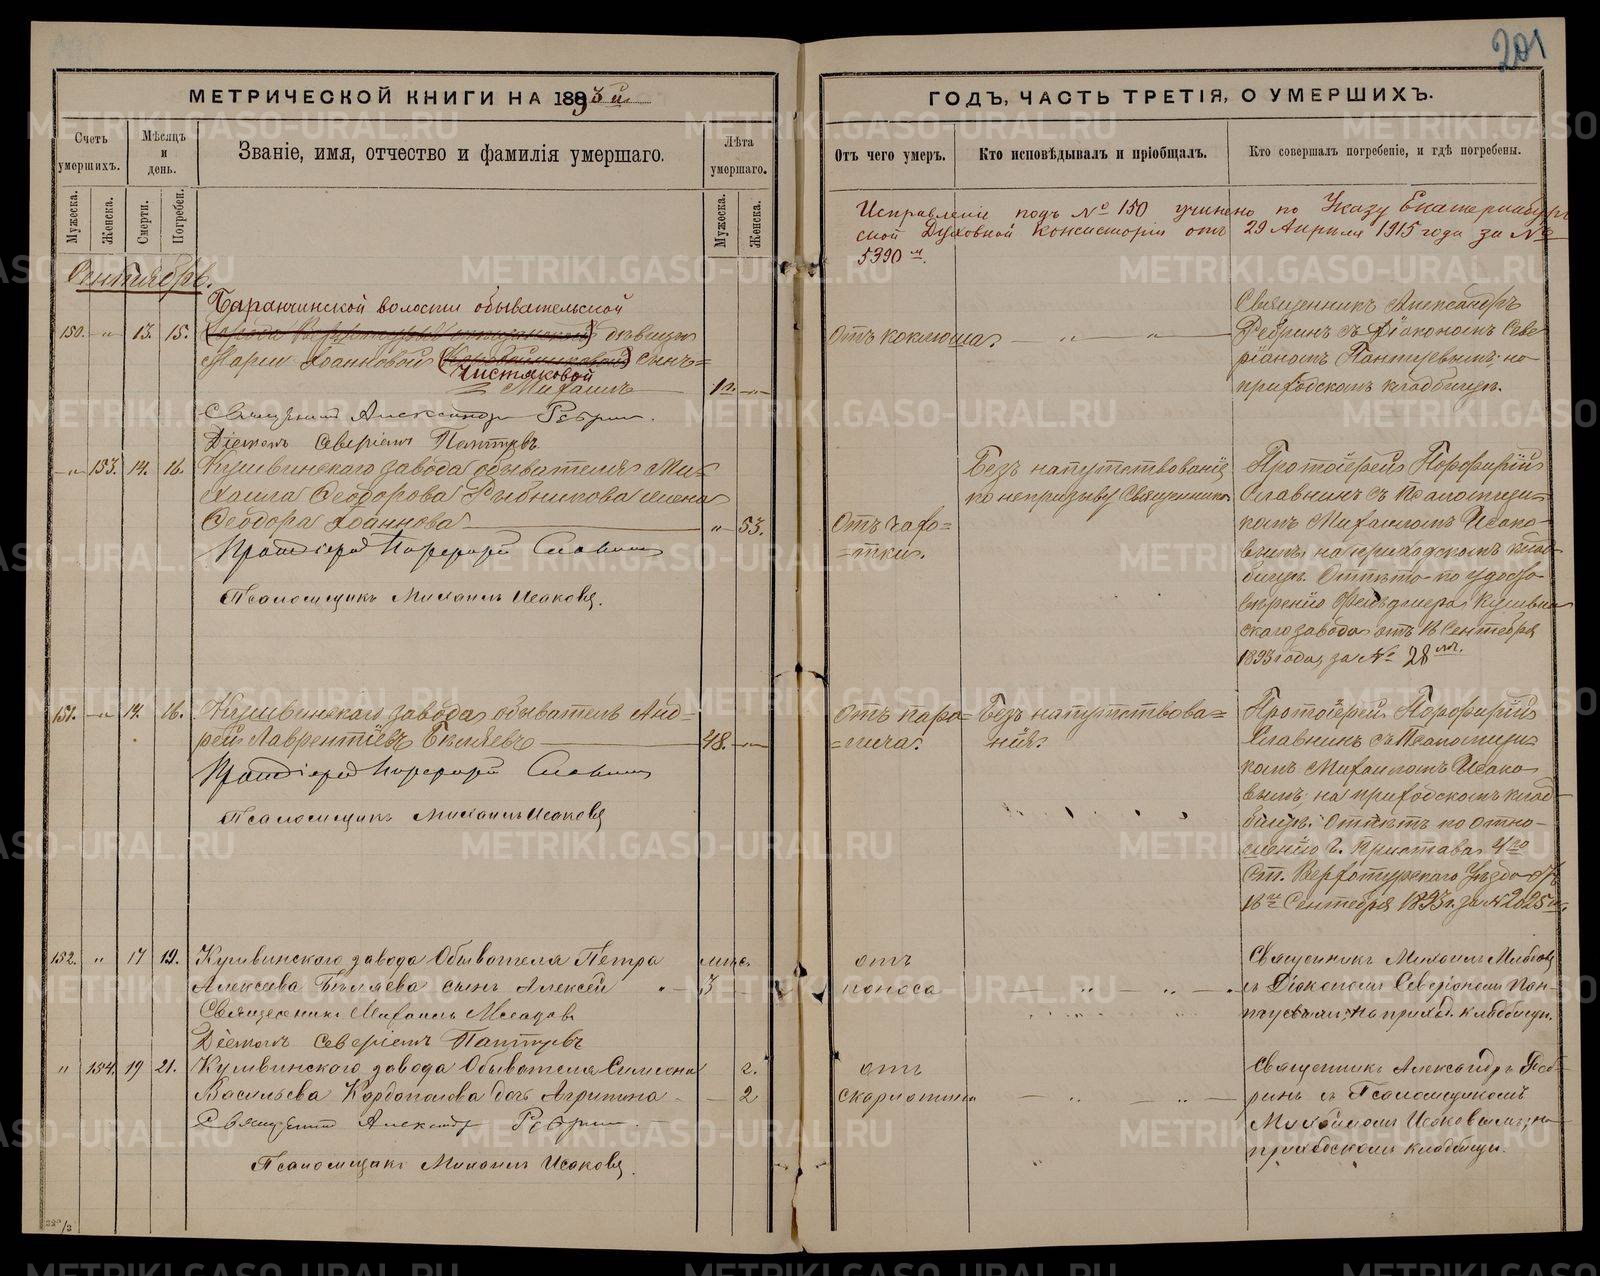 201
МЕТРИЧЕСКОЙ КНИГИ НА 1893 й
ГОДЪ, ЧАСТЬ ТРЕТІЯ, О УМЕРШИХЪ.
Счетъ умершихъ.
Мѣсяцъ и день.
Званіе, имя, отчество и фамилія умершаго.
Лѣта умершаго.
Отъ чего умеръ.
Кто исповѣдывалъ и пріобщалъ.
Кто совершалъ погребеніе, и гдѣ погребены.
Мужеска.
Женска.
Смерти.
Погребен.
Мужеска.
Женска.
Исправленіе подъ № 150 учинено по Указу Екатеринбург
ской Духовной Консисторіи отъ 29 Апрѣля 1915 года за №
5390
Сентябрь.
Баранчинской волости обывательской
150. " 13. 15. дѣвицы
Маріи Іоанновой сынъ
Чистяковой
Михаилъ 1 н.
Священникъ Александръ Ребринъ.
Діаконъ Северіанъ Пантуевъ
Отъ коклюша
Священникъ Александръ
Ребринъ съ Діакономъ Севе
ріаномъ Пантуевымъ, на
приходскомъ кладбищѣ.
" 153. 14. 16. Кушвинскаго завода обывателя Ми-
хаила Ѳеодорова Рыбникова жена
Ѳеодора Іоаннова " 53.
Протоіерей Порфирій Славнинъ
Псаломщикъ Михаилъ Исаковъ.
Отъ чахо=
=тки.
Безъ напутствованія
по непризыву Священника
Протоіерей Порфирій
Славнинъ съ Псаломщи-
комъ Михаиломъ Исако-
вымъ на приходскомъ клад-
бищѣ. Отпѣта по удосто-
вѣренію Фельдшера Кушвин
скаго завода отъ 16 Сентября
1893 года за № 28
151. " 14. 16. Кушвинскаго завода обыватель Анд-
рей Лаврентіевъ Бѣляевъ 48.
Протоіерей Порфирій Славнинъ
Псаломщикъ Михаилъ Исаковъ
Отъ пара-
=лича.
Безъ напутствова=
нія.
Протоіерей Порфирій
Славнинъ съ Псаломщи
комъ Михаиломъ Исако
вымъ на приходскомъ клад-
бищѣ. Отпѣтъ по отно-
шенію Г. Пристава 4го
Ст. Верхотурскаго Уѣзда отъ
16 Сентября 1893 г. за № 2025
152. " 17 19. Кушвинскаго завода Обывателя Петра мѣс.
Алексѣева Бѣляева сынъ Алексѣй 3
Священникъ Михаилъ
Діаконъ Северіанъ Пантуевъ
отъ
поноса
Священникъ Михаилъ
съ Діакономъ Северіаномъ Пан-
туевымъ, на приход. кладбищѣ.
" 154. 19 21. Кушвинскаго завода Обывателя Симеона г.
Васильева Кордополова дочь Агрипина 2
Священникъ Александръ Ребринъ.
Псаломщикъ Михаилъ Исаковъ.
отъ
скарлатины
Священникъ Александръ Реб-
ринъ съ Псаломщикомъ
Михаиломъ Исаковымъ, на
приходскомъ кладбищѣ.
METRIKI.GASO-URAL.RU